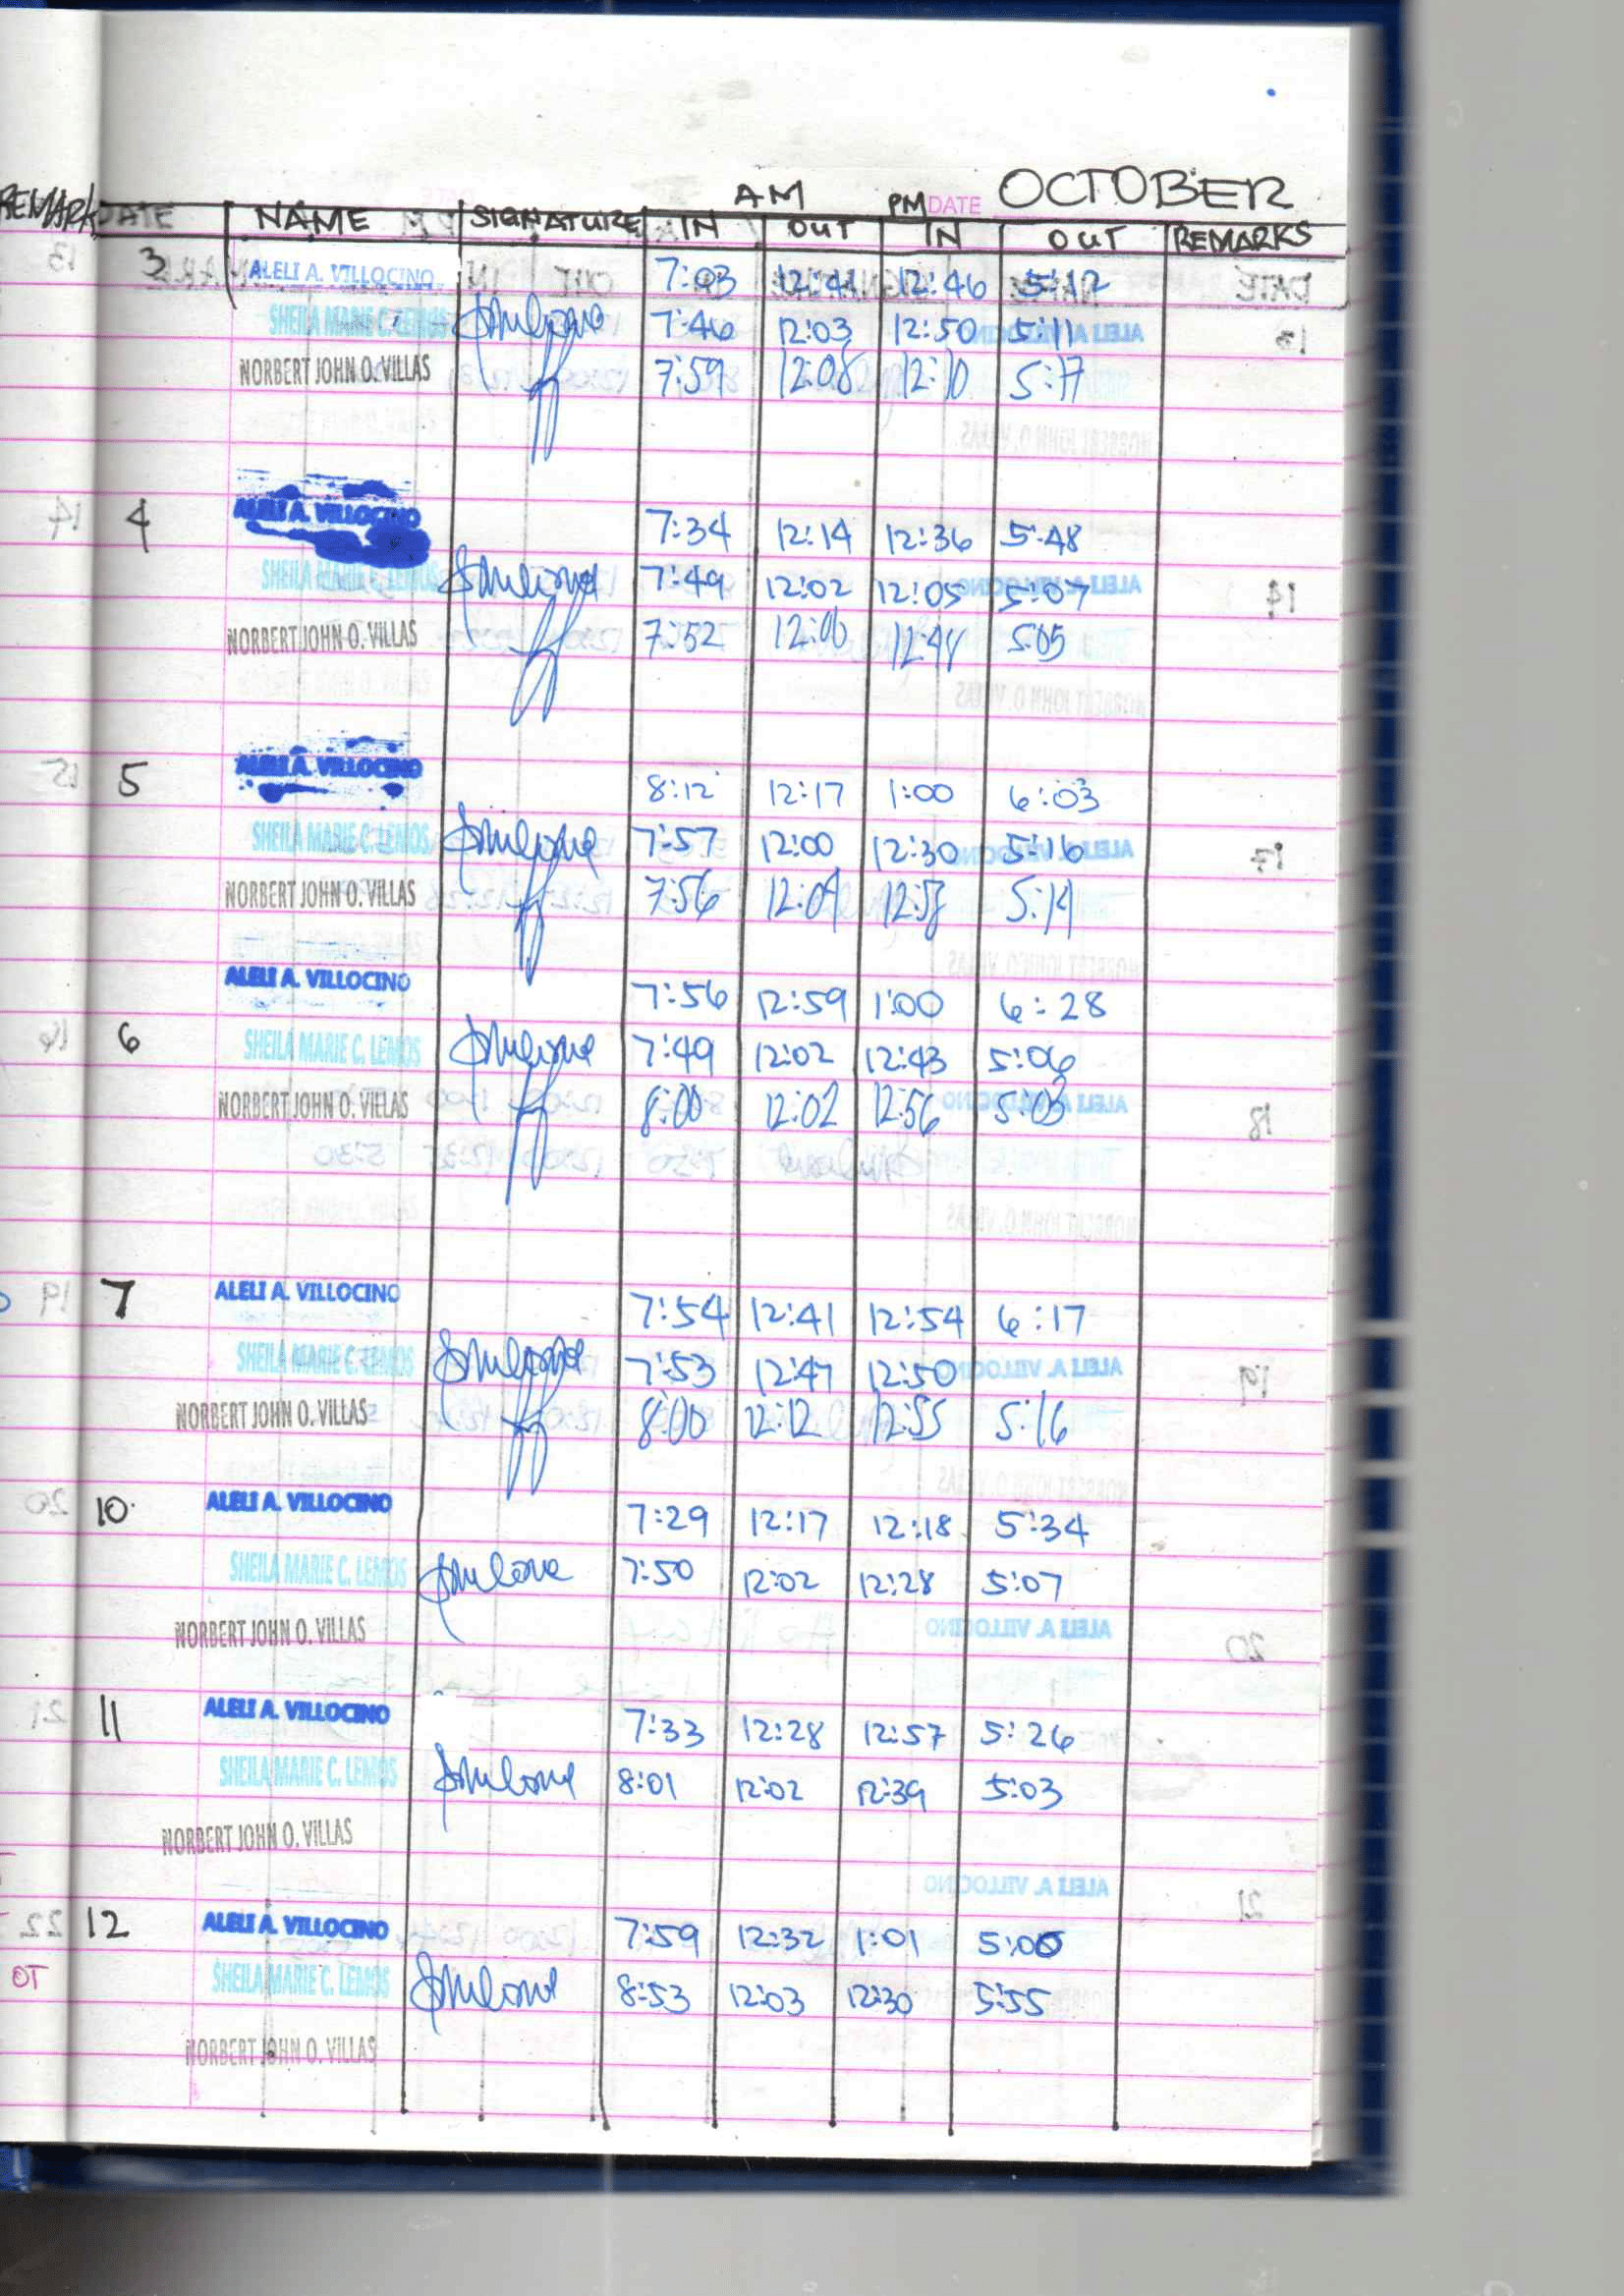 AM PM DATE OCTOBER
REMARK DATE NAME SIGNATURE IN OUT IN OUT REMARKS
3 ALELI A. VILLOCINO 7:03 12:41 12:46 5:12
SHEILA MARIE C. LEMOS 7:46 12:03 12:50 5:11
NORBERT JOHN O. VILLAS 7:59 12:08 12:10 5:17
4 ALELI A. VILLOCINO 7:34 12:14 12:36 5:48
SHEILA MARIE C. LEMOS 7:49 12:02 12:05 5:07
NORBERT JOHN O. VILLAS 7:52 12:48 5:05
5 ALELI A. VILLOCINO 8:12 12:17 1:00 6:03
SHEILA MARIE C. LEMOS 7:57 12:00 12:30 5:16
NORBERT JOHN O. VILLAS 7:56 12:09 12:58 5:14
ALELI A. VILLOCINO 7:56 12:59 1:00 6:28
6 SHEILA MARIE C. LEMOS 7:49 12:02 12:43 5:06
NORBERT JOHN O. VILLAS 8:00 12:02 12:56 5:03
7 ALELI A. VILLOCINO 7:54 12:41 12:54 6:17
SHEILA MARIE C. LEMOS 7:53 12:47 12:50
NORBERT JOHN O. VILLAS 8:00 12:12 12:55 5:16
10 ALELI A. VILLOCINO 7:29 12:17 12:18 5:34
SHEILA MARIE C. LEMOS 7:50 12:02 12:28 5:07
NORBERT JOHN O. VILLAS
11 ALELI A. VILLOCINO 7:33 12:28 12:57 5:26
SHEILA MARIE C. LEMOS 8:01 12:02 12:39 5:03
NORBERT JOHN O. VILLAS
12 ALELI A. VILLOCINO 7:59 12:32 1:01 5:00
OT SHEILA MARIE C. LEMOS 8:53 12:03 12:30 5:55
NORBERT JOHN O. VILLAS